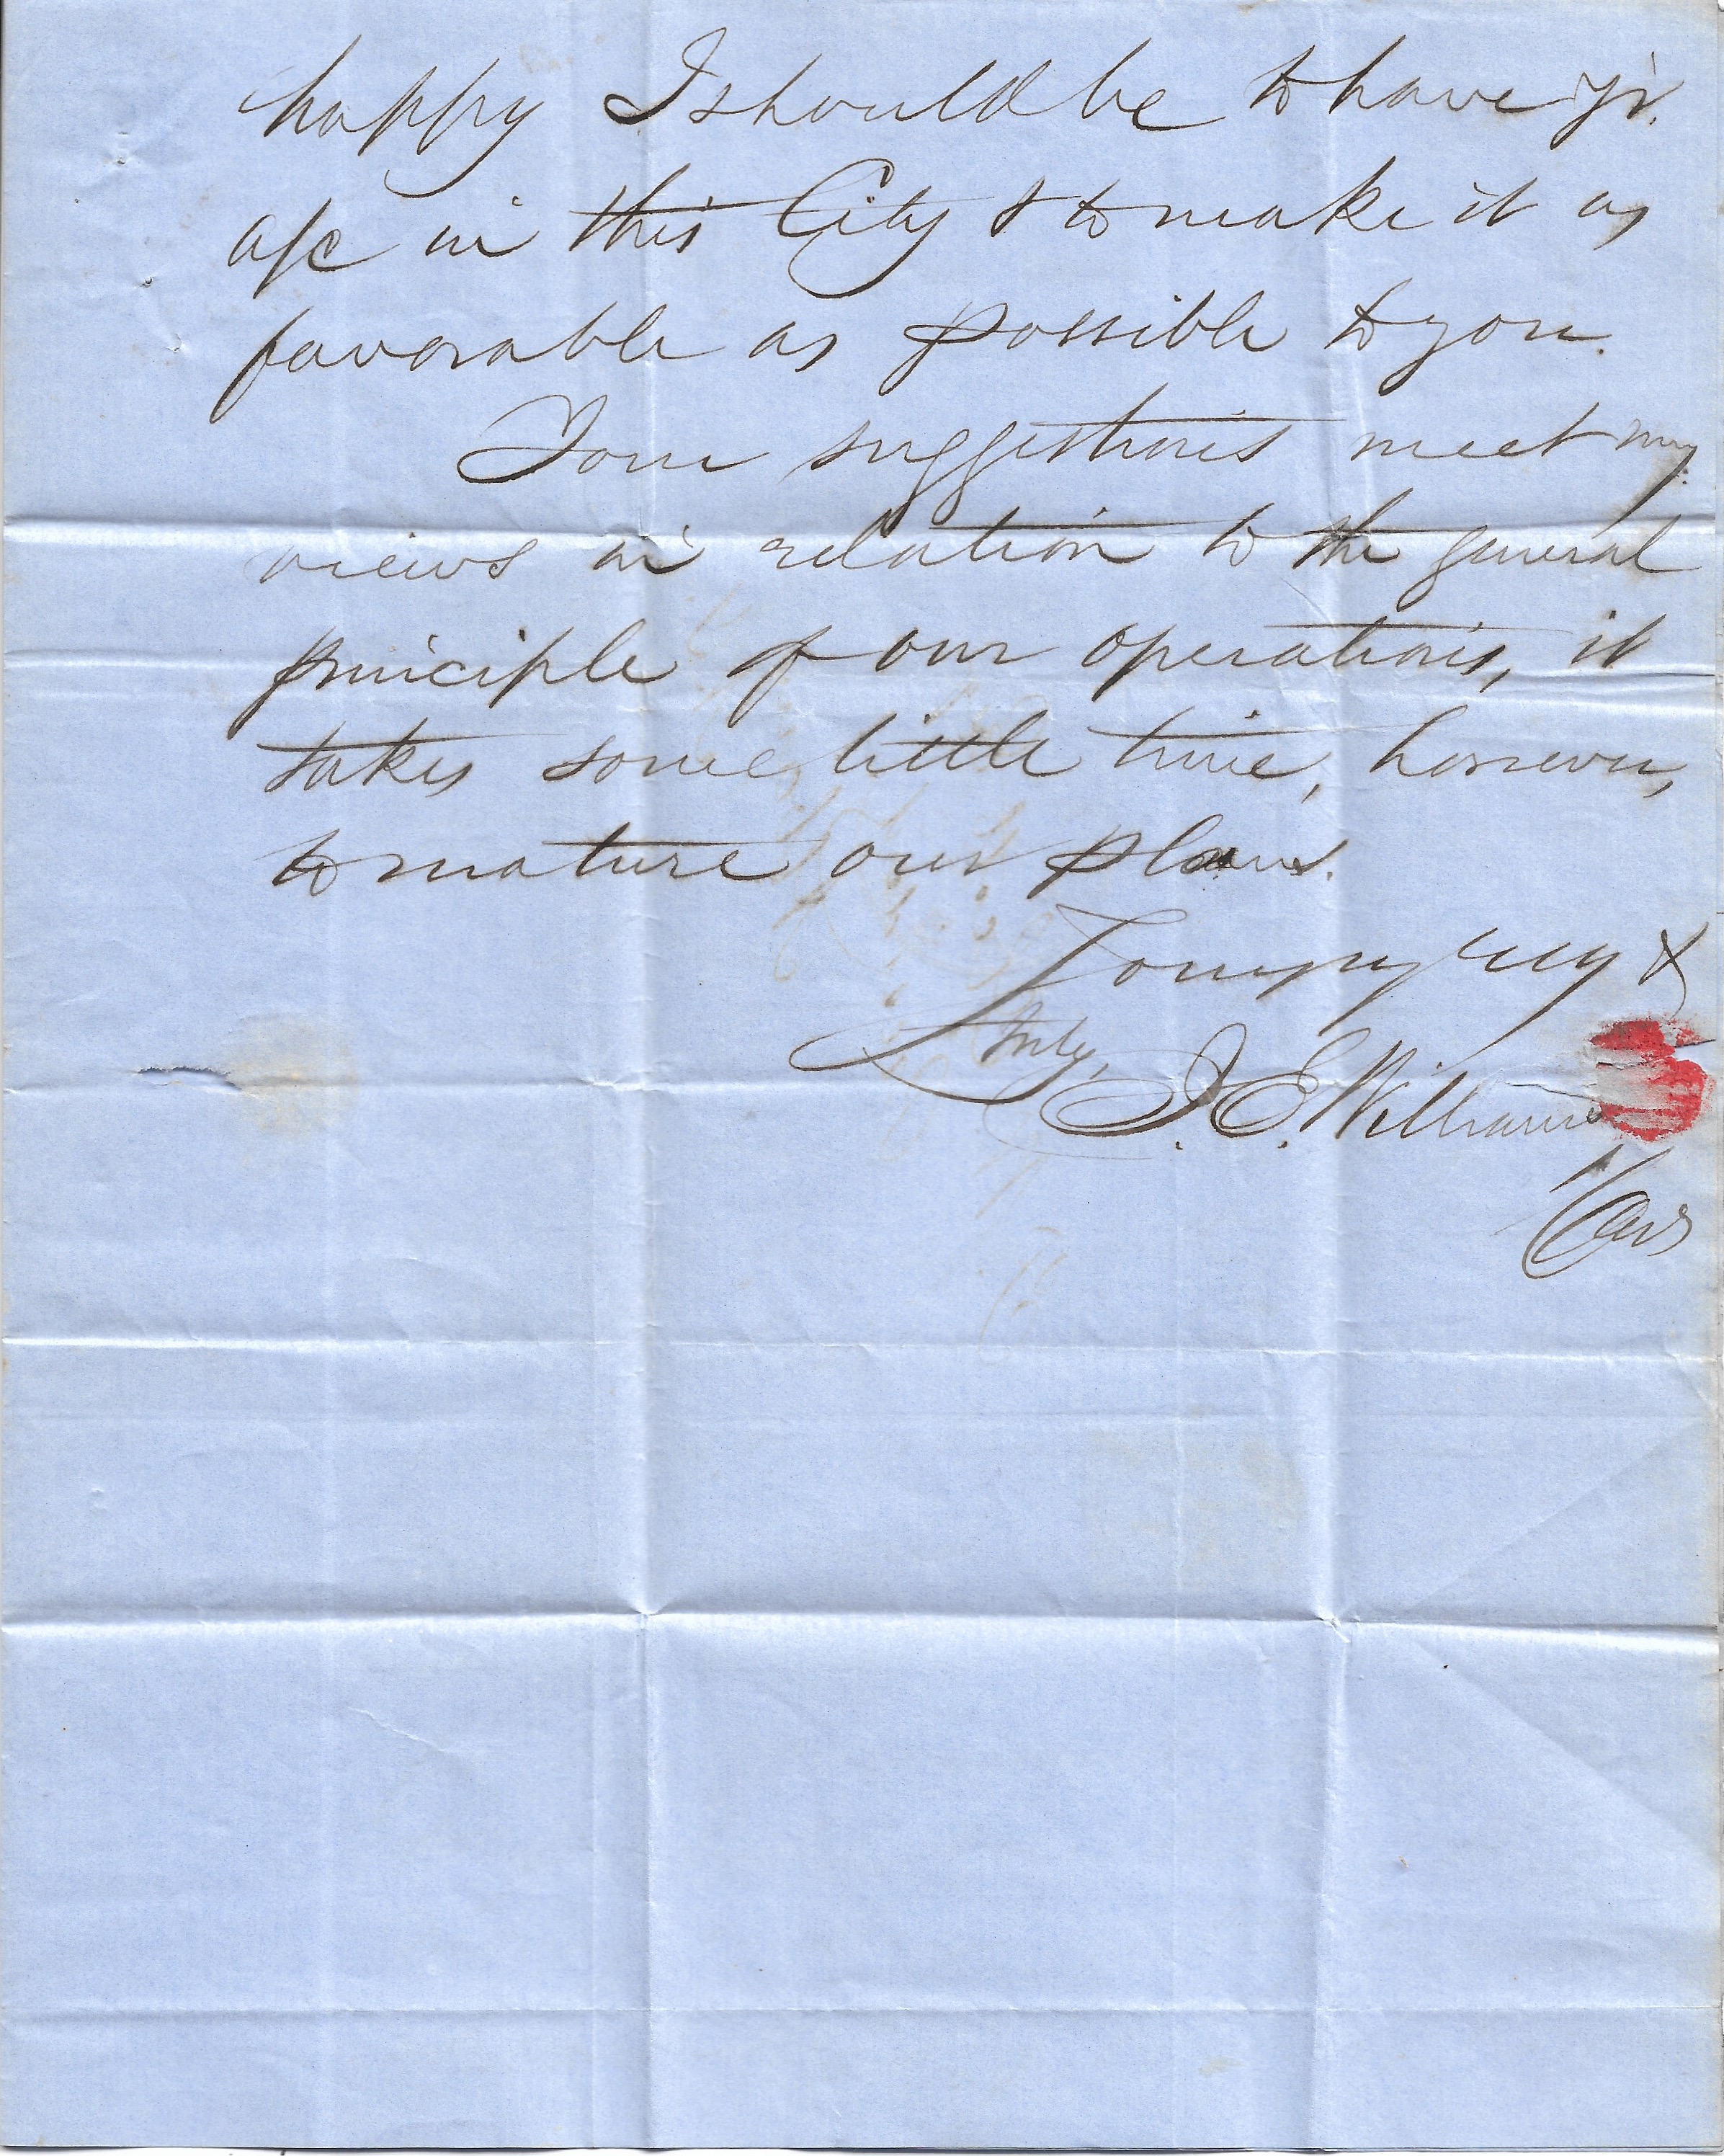 happy I should be to have yr.
a/c in this City & to make it as
favorable as possible to you.
Your suggestions meet my
views in relation to the general
principle of our operations, it
takes some little time, however,
to mature our plans.
Yours very &
truly,
J. E. Williams
Cas